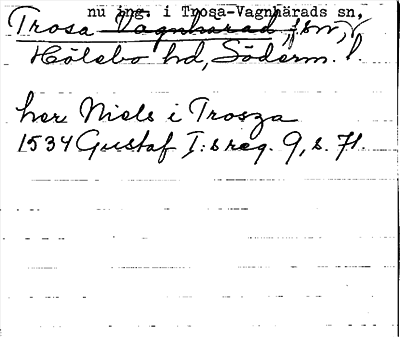 nu ing. i Trosa-Vagnhärads sn,
Trosa Vagnhärad sn,
Hölebo hd, Söderm. l.
her Niels i Trosza
1534 Gustaf I:s reg. 9, s. 71.